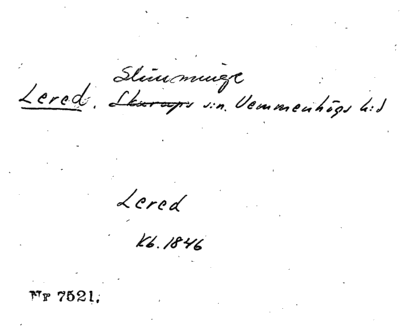 Slimminge
Lered, Skurups s:n. Vemmenhögs h:d
Lered
Kb. 1846
Nr 7521.